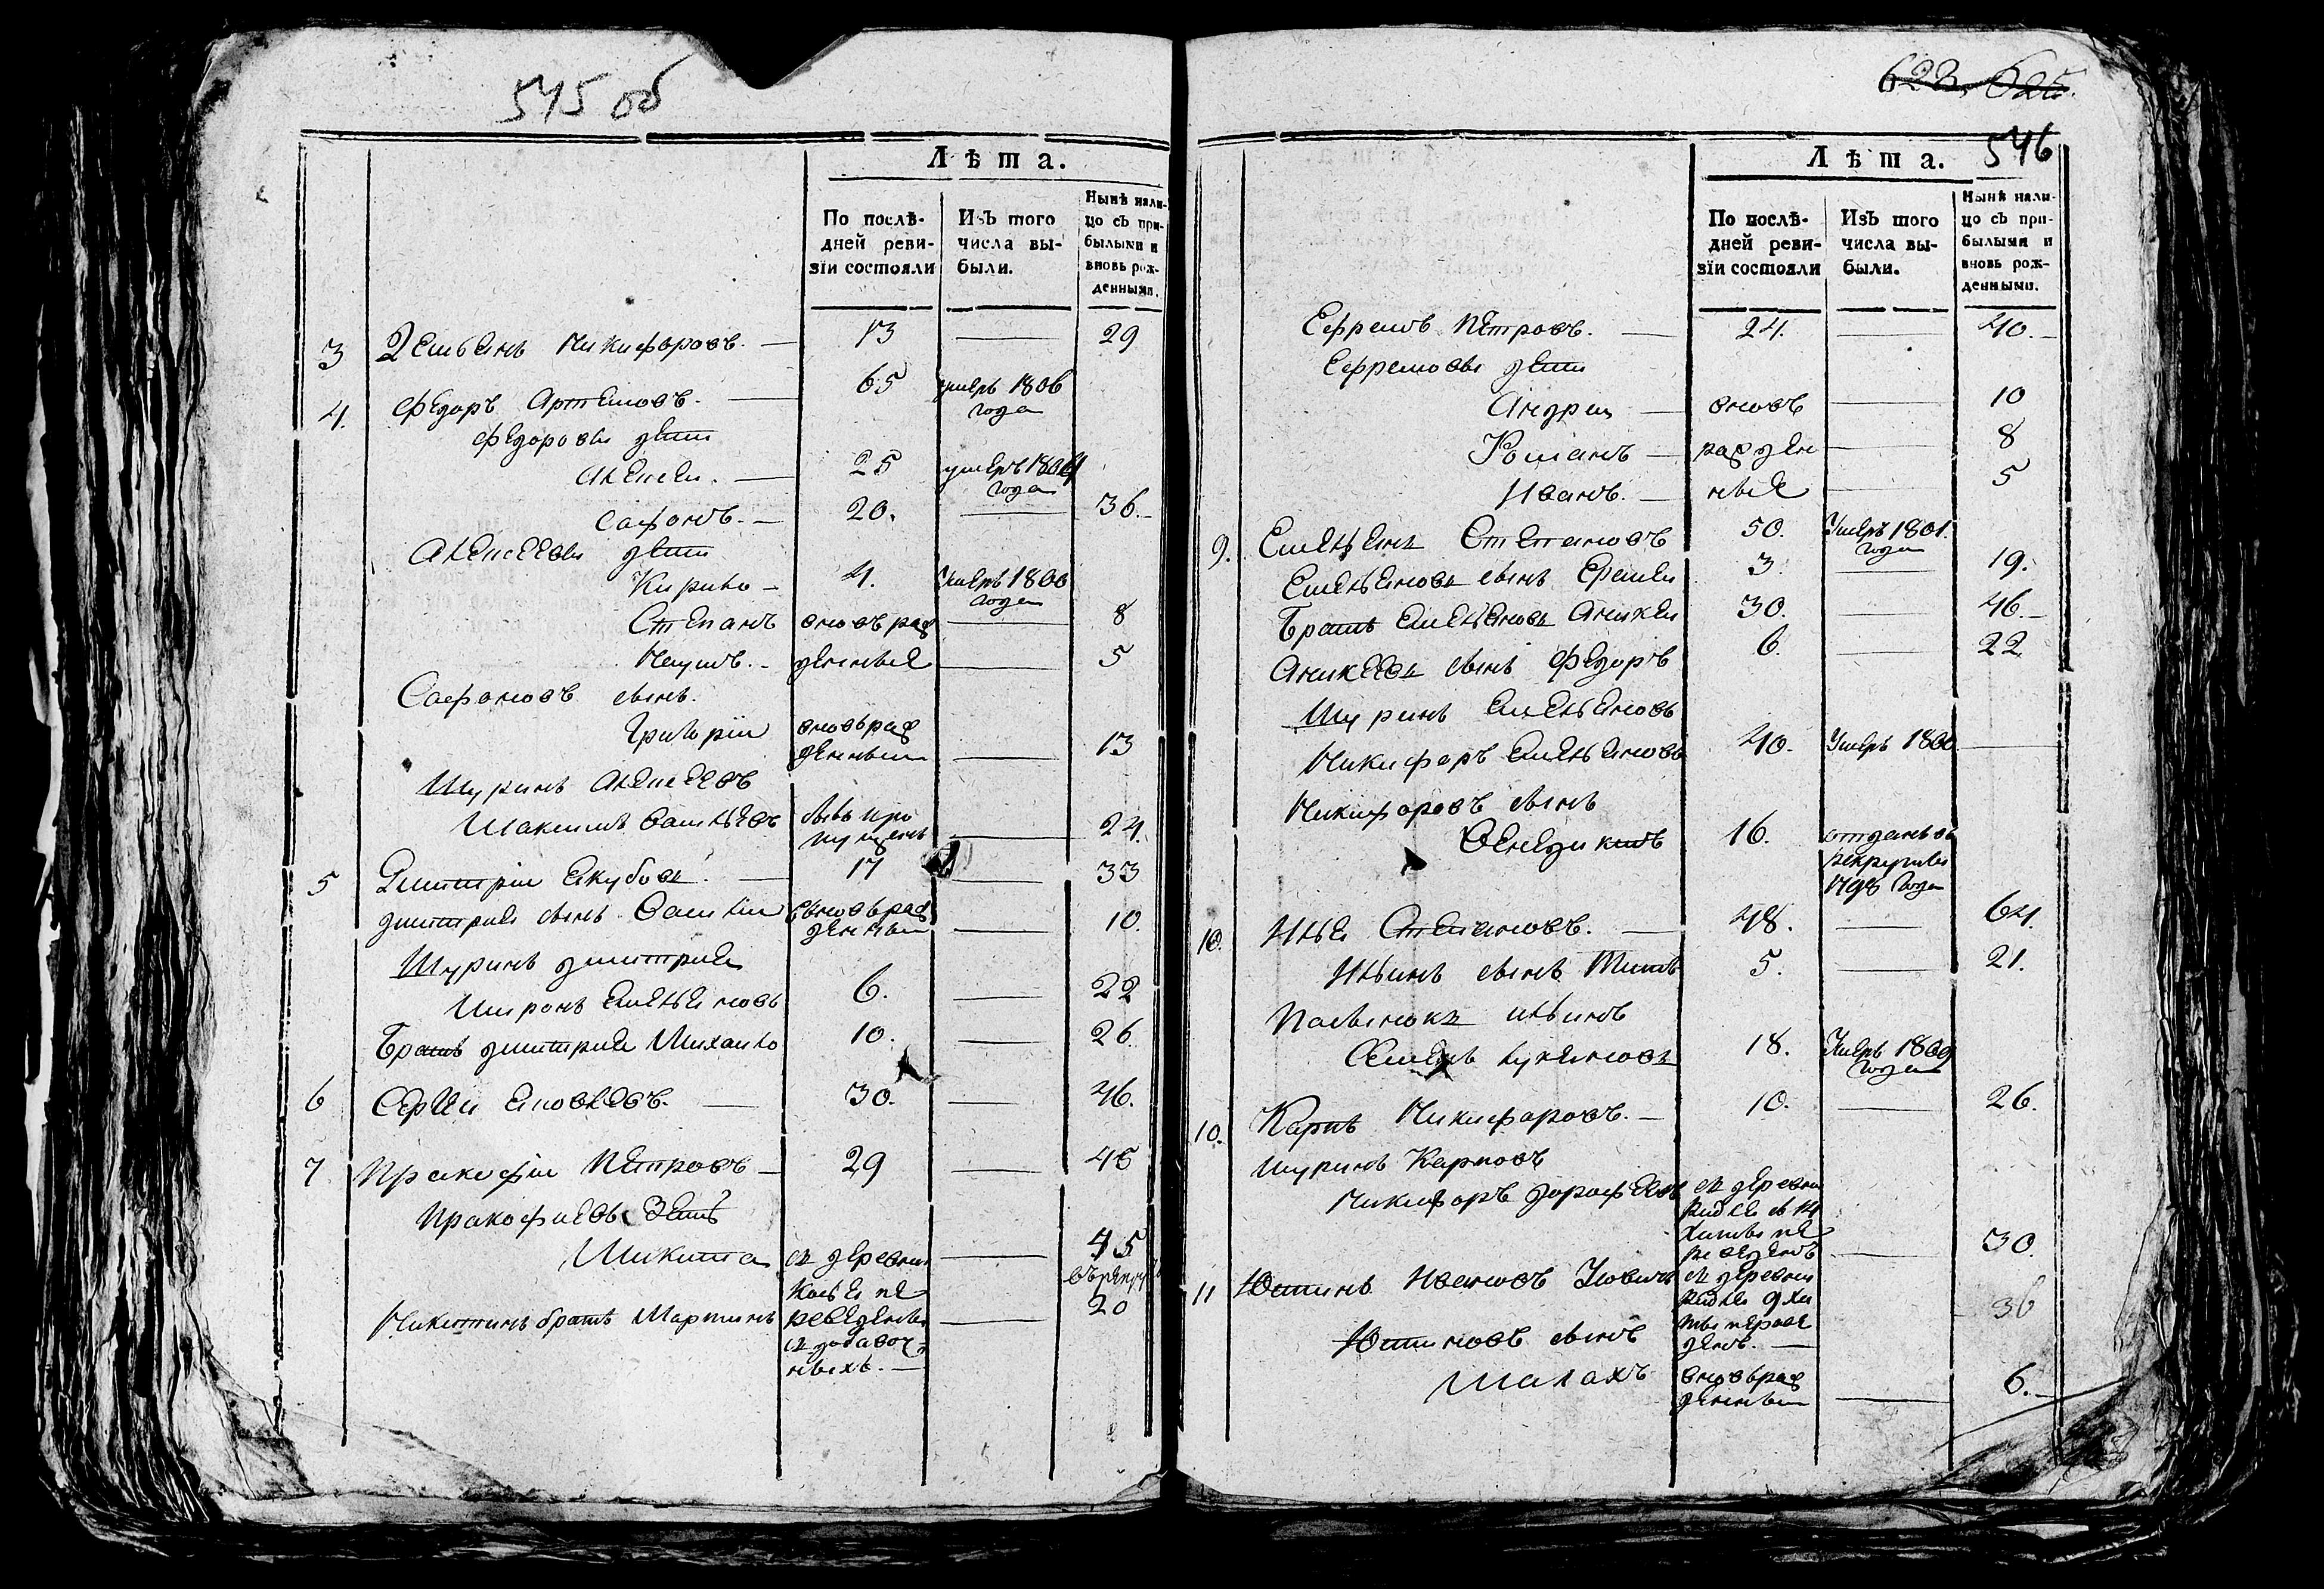 545 об
Лѣта.
По послѣ-
дней реви-
зіи состояли
Изъ того
числа вы-
были.
Нынѣ нали-
цо съ при-
былыми и
вновь рож-
денными.
3 Демьянъ Никифоровъ. — 13 — 29
4. Федоръ Артемовъ. — 65 умеръ 1806
года
Федоровы дети
Алексеи. — 25 умеръ 1804
года
Сафонъ. — 20. — 36.
Алексеевы дети
Кирило — 4. Умеръ 1800
года
Степанъ вновь рож — 8
Наумъ. — денные — 5
Сафоновъ сынъ.
Григории вновь рож
денныи — 13
Шуринъ Алексеевъ
Максимъ Васильевъ былъ про
пущенъ — 24.
5 Дмитрии Якубовъ. — 17 — 33
Дмитрия сынъ Василии вновь рож
денныи — 10.
Шуринъ Дмитрия
Миронъ Емельяновъ 6. — 22
Братъ Дмитрия Михаило 10. — 26.
6 Сергеи Яковлевъ. — 30. — 46.
7 Пракофии Петровъ — 29 — 45
Пракофиевъ Зять
Микита из деревни — 45
Косья пе
Никитинъ братъ Мартинъ реведены — 20
из добавоч
ныхъ. —
623. 625.
546
Лѣта.
По послѣ-
дней реви-
зіи состояли
Изъ того
числа вы-
были.
Нынѣ нали-
цо съ при-
былыми и
вновь рож-
денными.
Ефремъ Петровъ. — 24. — 40. —
Ефремовы дети
Андреи — вновь — 10
Романъ — рожден — 8
Иванъ. — ные — 5
9. Емельянъ Степановъ 50. Умеръ 1801.
года
Емельяновъ сынъ Еремеи 3. — 19.
Братъ Емельяновъ Аникеи 30. — 46. —
Аникеевъ сынъ Федоръ 6. — 22.
Шуринъ Емельяновъ
Никифоръ Емельяновъ 40. Умеръ 1800. —
Никифоровъ сынъ
Венедиктъ 16. отданъ въ
рекруты
1798 года
10. Илья Степановъ. — 48. — 64.
Ильинъ сынъ Титъ 5. — 21.
Пасынокъ Ильинъ
Семенъ Лукьяновъ 18. Умеръ 1809
года
10. Карпъ Никифоровъ. — 10. — 26.
Шуринъ Карповъ
Никифоръ Дорофеевъ из деревни
пе
реведенъ — 30.
11 Устинъ Ивановъ из деревни
переве 36
Устиновъ сынъ денъ. —
Малахъ вновь рож
денныи — 6. —